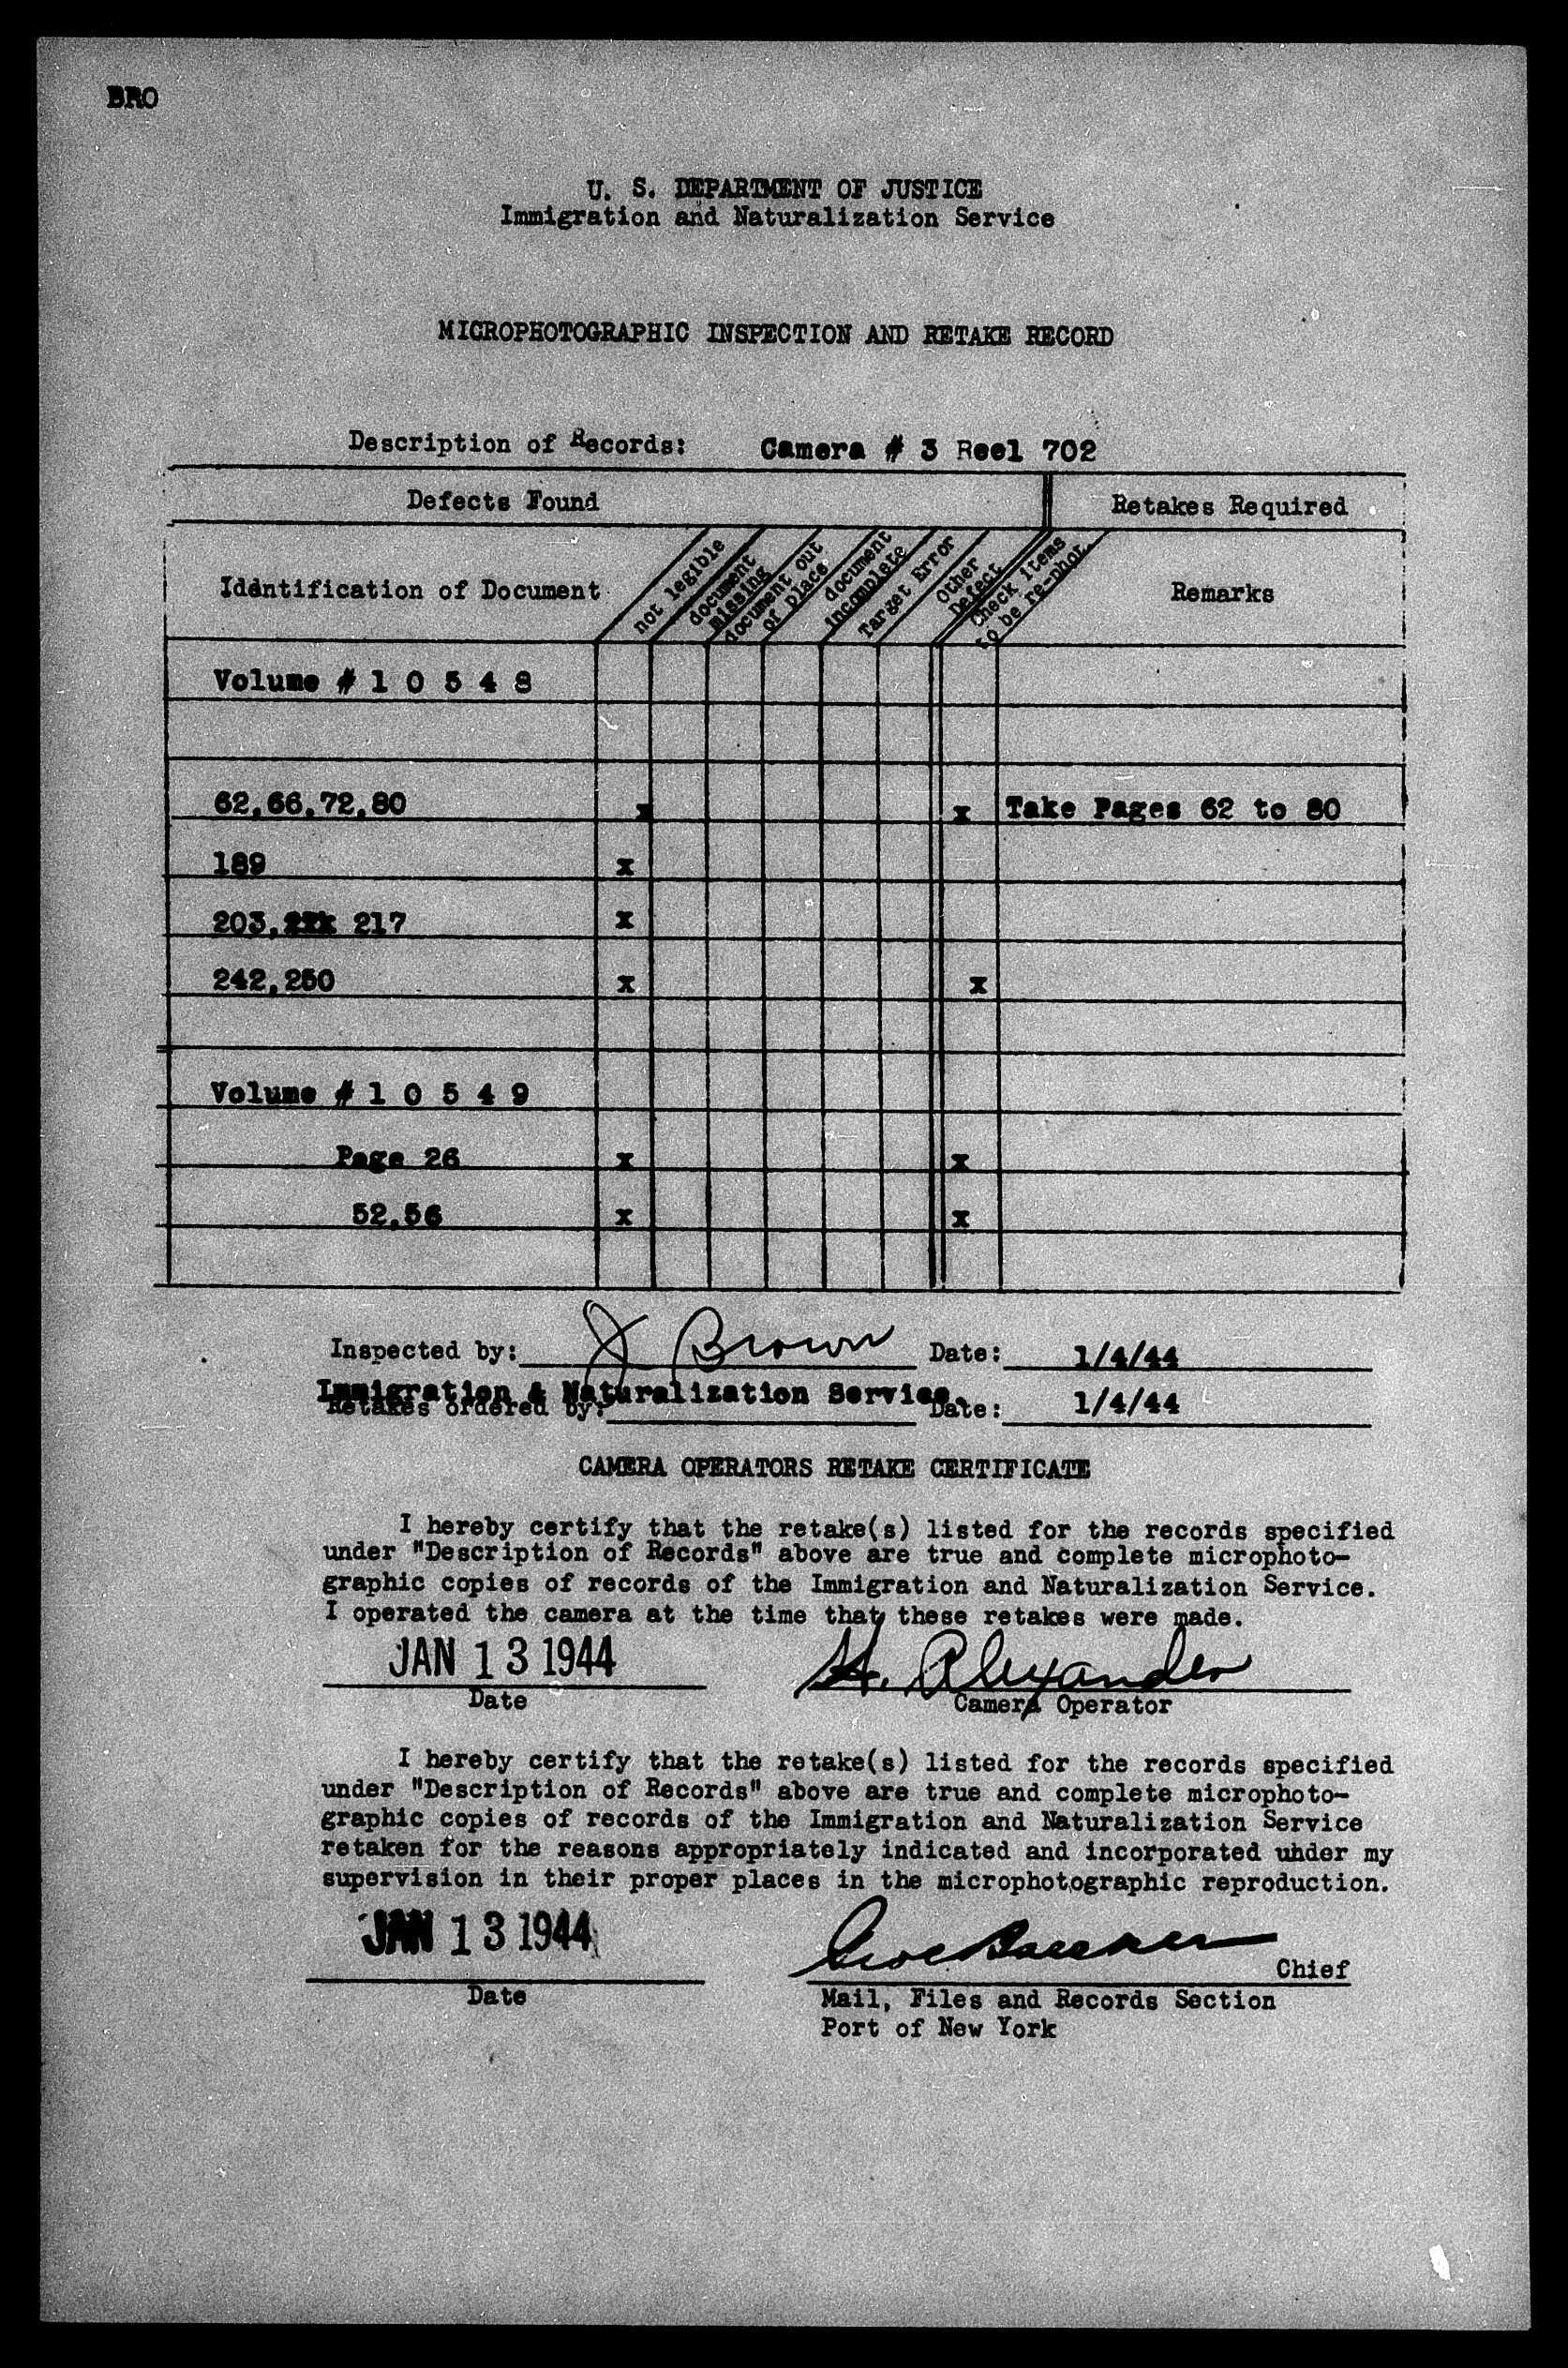 BRO
U. S. DEPARTMENT OF JUSTICE
Immigration and Naturalization Service
MICROPHOTOGRAPHIC INSPECTION AND RETAKE RECORD
Description of Records: Camera # 3 Reel 702
Defects Found Retakes Required
Identification of Document not legible document missing document out of place document incomplete Target Error Other Defect Check items to be re-phot. Remarks
Volume # 1 0 5 4 8
62,66,72,80 x x Take Pages 62 to 80
189 x
203, 217 x
242,250 x x
Volume # 1 0 5 4 9
Page 26 x x
52,56 x x
Inspected by: J Brown Date: 1/4/44
Immigration & Naturalization Service.
Retakes ordered by: Date: 1/4/44
CAMERA OPERATORS RETAKE CERTIFICATE
I hereby certify that the retake(s) listed for the records specified
under "Description of Records" above are true and complete microphoto-
graphic copies of records of the Immigration and Naturalization Service.
I operated the camera at the time that these retakes were made.
JAN 13 1944 H. Alexander
Date Camera Operator
I hereby certify that the retake(s) listed for the records specified
under "Description of Records" above are true and complete microphoto-
graphic copies of records of the Immigration and Naturalization Service
retaken for the reasons appropriately indicated and incorporated under my
supervision in their proper places in the microphotographic reproduction.
JAN 13 1944 Chief
Date Mail, Files and Records Section
Port of New York